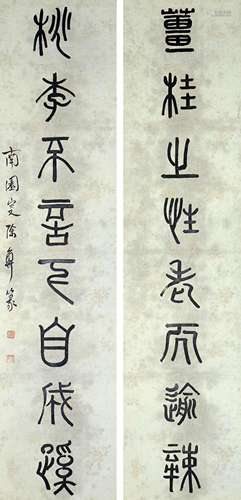 薑桂之性老而逾辣
桃李不言下自成蹊
南園叟 篆